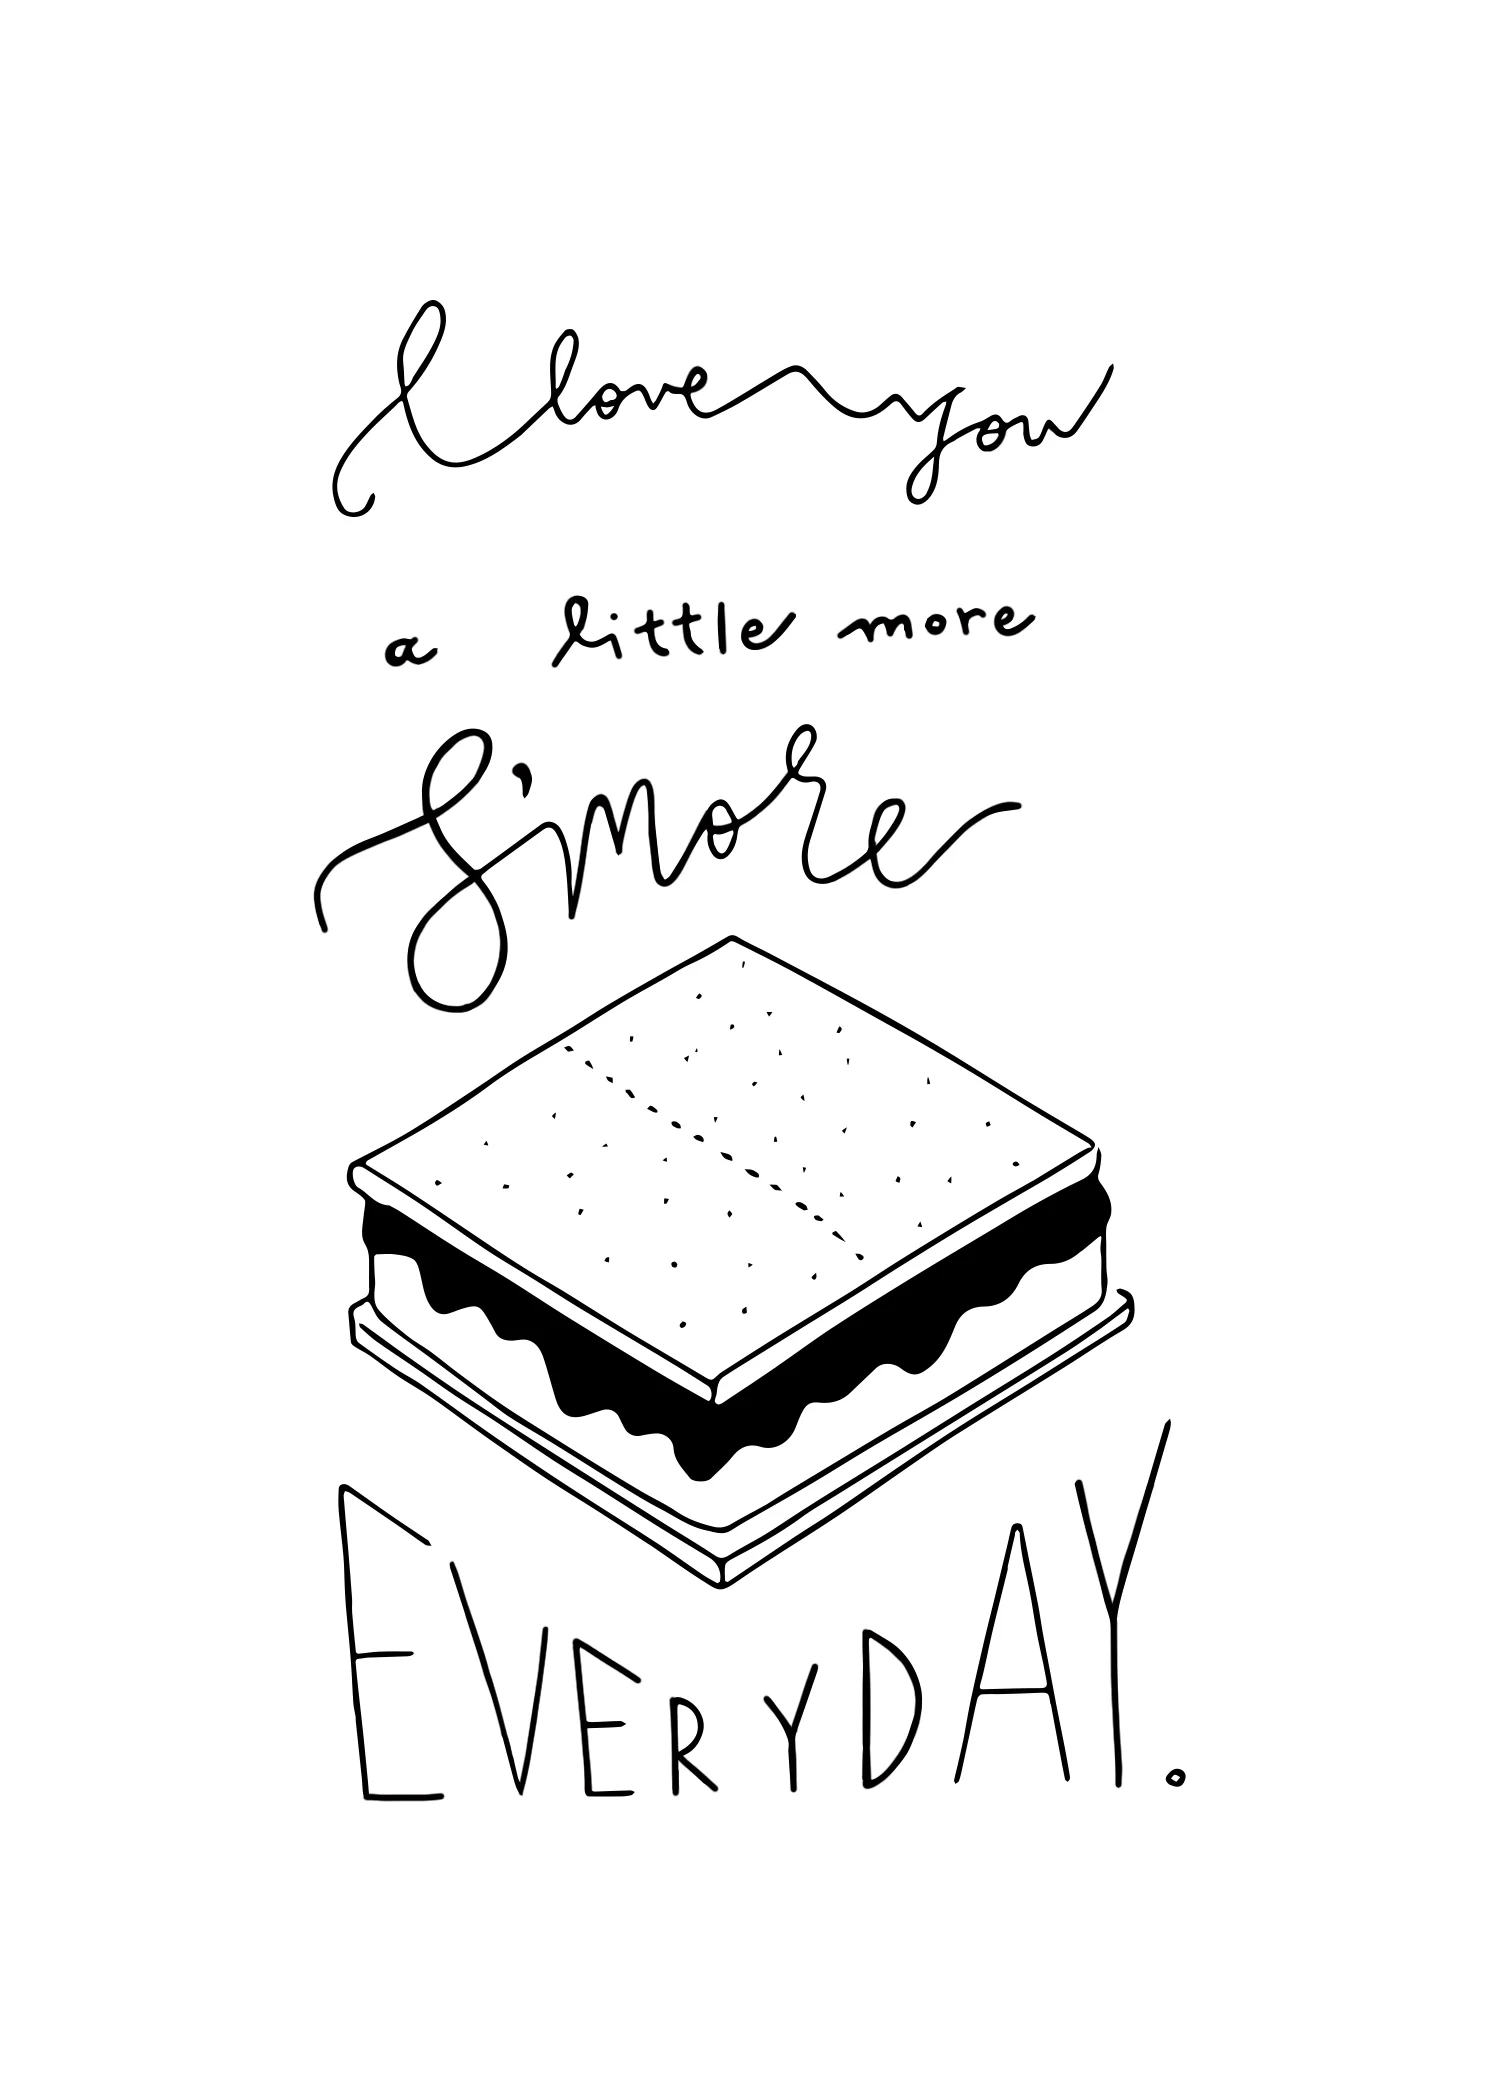 I love you
a little more
S'more
EVERYDAY.